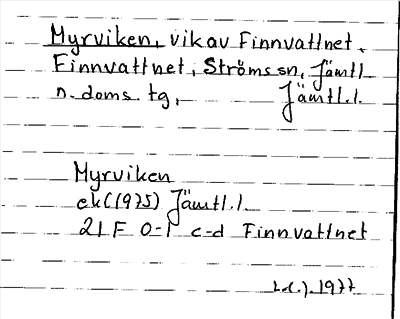 Myrviken, vik av Finnvattnet,
Finnvattnet, Ströms sn, Jämtl.
n. doms. tg, Jämtl.l.
Myrviken
ek (1975) Jämtl.l.
21F 0-1 c-d Finnvattnet
1977